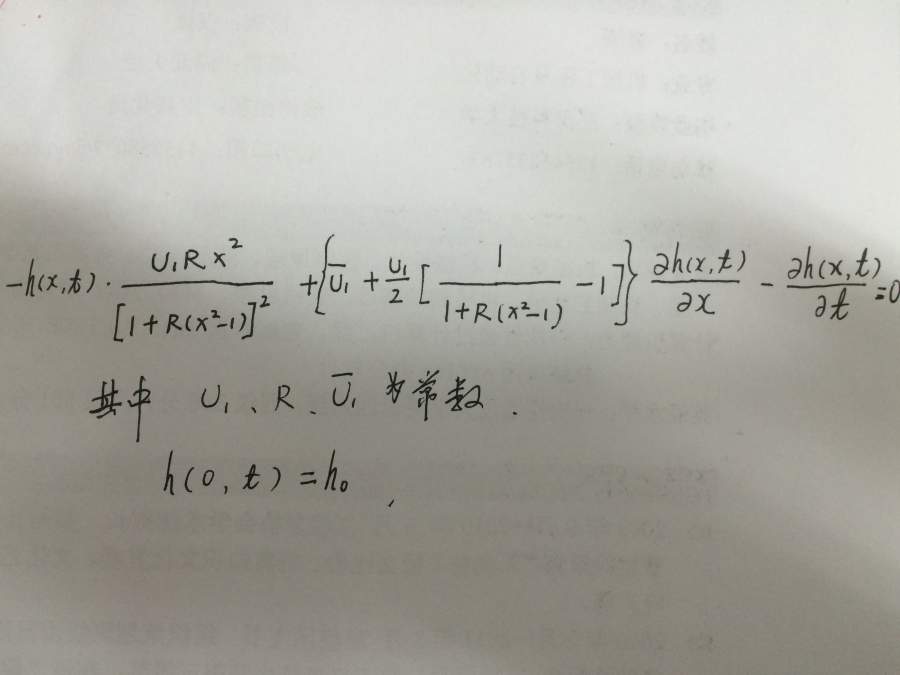 -h(x,t)·\frac{U₁Rx²}{[1+R(x²-1)]²}+{\overline{U}₁+\frac{U₁}{2}[\frac{1}{1+R(x²-1)}-1]}\frac{∂h(x,t)}{∂x}-\frac{∂h(x,t)}{∂t}=0
其中 U₁、R、\overline{U}₁为常数.
h(0,t)=h₀,